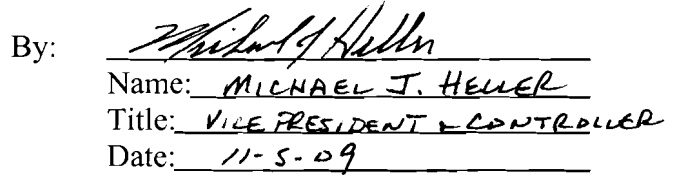 By: Michael J Heller
Name: MICHAEL J. HELLER
Title: VICE PRESIDENT & CONTROLLER
Date: 11-5-09